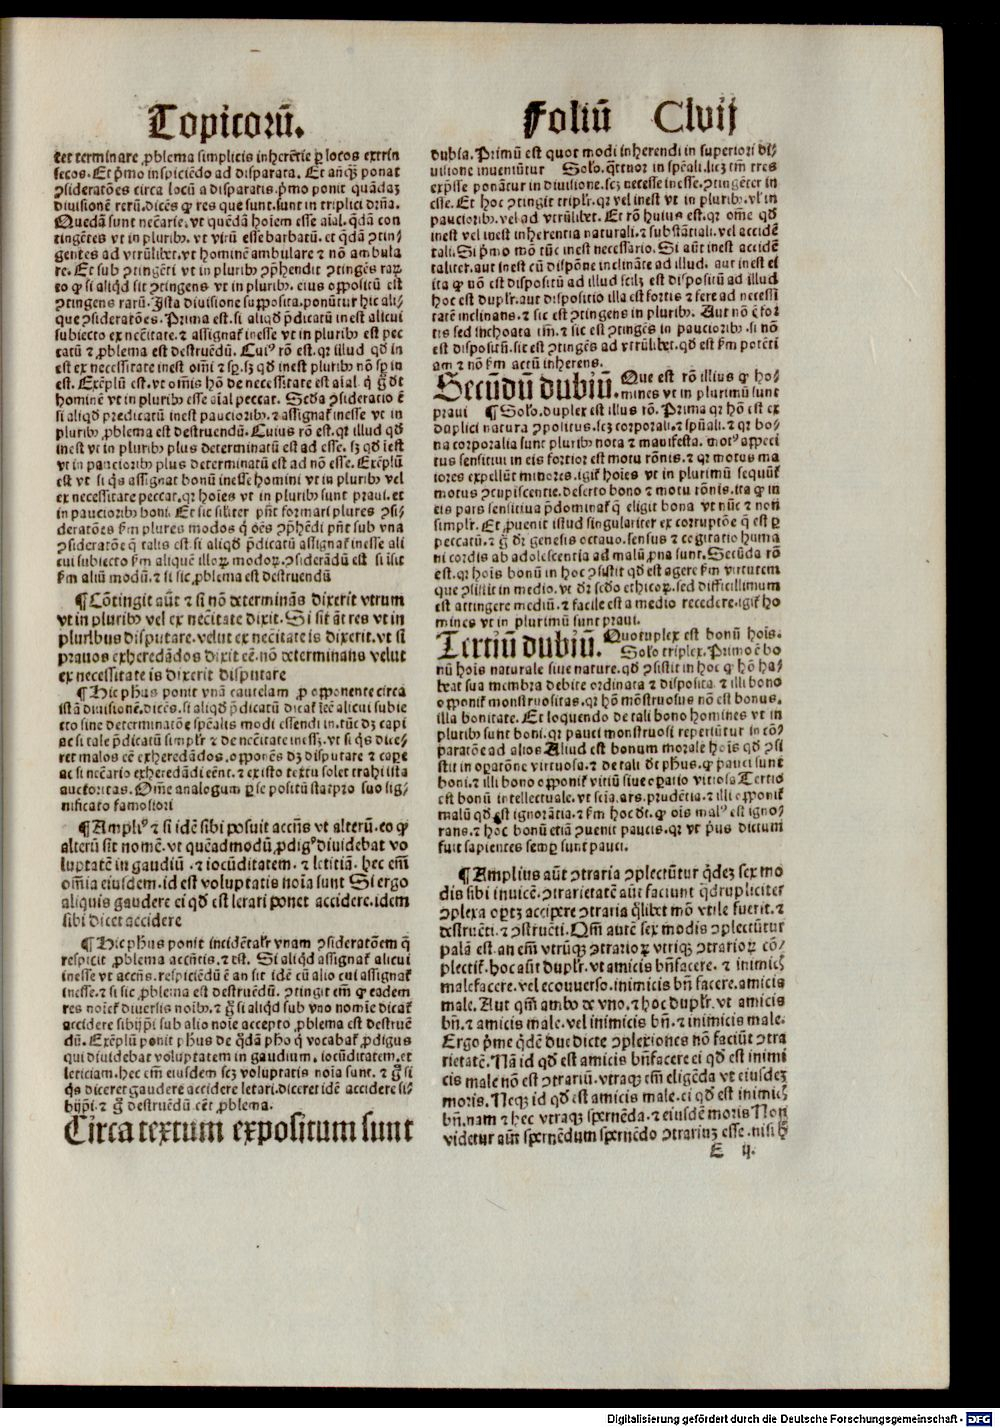 Topicorū. Foliū Clvij
tet terminare ꝓblema simplicis inherētie ꝑ locos extrin
secos. Et p̄mo inspiciēdo ad disparata. Et anq̄ꝫ ponat
ꝯsideratōes circa locū a disparatis. p̄mo ponit quādaꝫ
diuisionē rerū. dicēs ꝙ res que sunt. sunt in triplici dr̄na.
Quedā sunt nec̄arie. vt quēdā hoīem esse aīal. q̄dā con
tingētes vt in pluribꝰ. vt virū esse barbatū. et q̄dā ꝯtin⸗
gentes ad vtrūlibet. vt hominē ambulare ⁊ nō ambula
re. Et sub ꝯtingēti vt in pluribꝰ ꝯp̄hendit ꝯtingēs raꝝ
eo ꝙ si aliqd̄ sit ꝯtingens vt in pluribꝰ. eius oppositū est
ꝯtingens rarū. Ista diuisione supposita. ponūtur hic ali⸗
que ꝯsideratōes. Prima est. si aliqd̄ p̄dicatū inest alicui
subiecto ex nec̄itate. ⁊ assignat̄ inesse vt in pluribꝰ est pec
catū ⁊ ꝓblema est destruēdū. Cuiꝰ rō est. qr illud qd̄ in
est ex necessitate inest oīmi ⁊ sꝑ. sꝫ qd̄ inest pluribꝰ nō sꝑ in
est. Exēplū est. vt oīmis hō de necessitate est aīal. q̄ ḡ dt
hominē vt in pluribꝰ esse aīal peccat. Scd̄a ꝯsideratio ē
si aliqd̄ predicatū inest paucioribꝰ. ⁊ assignat̄ inesse vt in
pluribꝰ ꝓblema est destruēdū. Cuius rō est. qr illud qd̄
inest vt in pluribꝰ plus determinatū est ad esse. sꝫ qd̄ īest
vt in paucioribꝰ plus determinatū est ad nō esse. Exēplū
est vt si q̄s assignat bonū inesse homini vt in pluribꝰ vel
ex necessitate peccat. qr hoīes vt in pluribꝰ sunt praui. et
in paucioribꝰ boni. Et sic sīliter pn̄t formari plures ꝯsi⸗
deratōes km̄ plures modos q̄ oēs ꝯp̄hēdi pn̄t sub vna
ꝯsideratōe q̄ talis est. si aliqd̄ p̄dicatū assignat̄ inesse ali
cui subiecto km̄ aliquē illoꝝ modoꝝ. ꝯsiderādū est si īsit
km̄ aliū modū. ⁊ si sic ꝓblema est destruendū
¶ Cōtingit aūt ⁊ si nō determinās dixerit vtrum
vt in pluribꝰ vel ex nec̄itate dixit. Si sit āt res vt in
pluribus disputare. velut ex nec̄itate is dixerit. vt si
prauos exheredādos dixit eē. nō determinatis velut
ex necessitate is dixerit disputare
¶ Hic ph̄us ponit vnā cautelam ꝓ opponente circa
istā diuisionē. dicēs. si aliqd̄ p̄dicatū dicat̄ īeē alicui subie
cto sine determinatōe sp̄ealis modi essendi in. tūc dꝫ capi
ac si tale p̄dicatū simplr̄ ⁊ de nec̄itate inessꝫ. vt si q̄s dice⸗
ret malos eē exheredādos. opponēs dꝫ disputare ⁊ capere
ac si nec̄ario exheredādi eēnt. ⁊ ex isto textu solet trahi ista
auctoritas. Om̄e analogum ꝑ se positū stat pro suo sig⸗
nificato famosiori
¶ Ampliꝰ ⁊ si idē sibi posuit accn̄s vt alterū. eo ꝙ
alterū sit nomē. vt quēadmodū ꝓdigꝰ diuidebat vo
luptatē in gaudiū. ⁊ iocūditatem. ⁊ letitiā. hec em̄
omīa eiusdem. id est voluptatis noīa sunt Si ergo
aliquis gaudere ei qd̄ est letari ponet accidere. idem
sibi dicet accidere
¶ Hic ph̄us ponit incidētalr̄ vnam ꝯsideratōem q̄
respicit ꝓblema accn̄tis. ⁊ est. Si aliqd̄ assignat̄ alicui
inesse vt accn̄s. respiciēdū ē an sit idē cū alio cui assignat̄
inesse. ⁊ si sic ꝓblema est destruēdū. ꝯtingit em̄ ꝙ eadem
res noīet̄ diuersis noībꝰ. ⁊ ḡ si aliqd̄ sub vno nomīe dicat̄
accidere sibijpi sub alio noīe accepto ꝓblema est destruē
dū. Exēplū ponit ph̄us de q̄dā ph̄o q̄ vocabat̄ ꝓdigus
qui diuidebat voluptatem in gaudium. iocūditatem. et
leticiam. hec em̄ eiusdem scꝫ voluptatis noīa sunt. ⁊ ḡ si
q̄s diceret gaudere accidere letari. diceret idē accidere si⸗
bijpi. ⁊ ḡ destruēdū eēt ꝓblema.
Circa textum expositum sunt
dubia. Primū est quot modi inherendi in superiori di⸗
uisione inueniūtur Solo. q̄ttuor in sp̄eali. licꝫ tm̄ tres
exp̄sse ponātur in diuisione. scꝫ necesse inesse. ꝯtingēter in
esse. Et hoc ꝯtingit triplr̄. qr vel inest vt in pluribꝰ. vl̄ in
paucioribꝰ. vel ad vtrūlibet. Et rō huius est. qr om̄e qd̄
inest vel inest inherentia naturali. ⁊ substātiali. vel accidē
tali. Si p̄mo mō tūc inest necessario. Si aūt inest accidē
taliter. aut inest cū dispōne inclināte ad illud. aut inest ei
ita ꝙ nō est dispositū ad illud scilꝫ est dispositū ad illud
hoc est duplr̄. aut dispositio illa est fortis ⁊ fere ad necessi
tatē inclinans. ⁊ sic est ꝯtingens in pluribꝰ. Aut nō ē for
tis sed inchoata tm̄. ⁊ sic est ꝯtingēs in paucioribꝰ. si nō
est dispositū. sit est ꝯtingēs ad vtrūlibet. qd̄ est km̄ potēti
am ⁊ nō km̄ actū inherens.
Secūdū dubiū. Que est rō illius ꝙ ho⸗
mines vt in plurimū sunt
praui ¶ Solo. duplex est illius rō. Prima qr hō est ex
duplici natura ꝯpositus. scꝫ corporali. ⁊ sp̄uali. ⁊ qr bo⸗
na corporalia sunt pluribꝰ nota ⁊ manifesta. motꝰ appeti
tus sensitiui in eis fortior est motu rōnis. ⁊ qr motus ma
iores expellūt minores. igit̄ hoīes vt in plurimū sequūt̄
motus ꝯcupiscentie. deserto bono ⁊ motu rōnis. ita ꝙ in
eis pars sensitiua p̄dominat̄ q̄ eligit bona vt nūc ⁊ non
simplr̄. Et ꝓuenit istud singulariter ex corruptōe q̄ est ꝑ
peccatū. ⁊ ḡ dr̄ genesis octauo. sensus ⁊ cogitatio huma
ni cordis ab adolescentia ad malū ꝓna sunt. Secūda rō
est. qr hoīs bonū in hoc ꝯsistit qd̄ est agere km̄ virtutem
que ꝯsistit in medio. vt dr̄ scd̄o ethicoꝝ. sed difficillimum
est attingere mediū. ⁊ facile est a medio recedere. igit̄ ho
mines vt in plurimū sunt praui.
Tertiū dubiū. Quotuplex est bonū hoīs.
Solo triplex. Primo ē bo
nū hoīs naturale siue nature. qd̄ ꝯsistit in hoc ꝙ hō ha⸗
beat sua membra debite ordinata ⁊ disposita. ⁊ illi bono
opponit̄ monstruositas. qr hō mōstruosus nō est bonus.
illa bonitate. Et loquendo de tali bono homines vt in
pluribꝰ sunt boni. qr pauci monstruosi reperiūtur in cō⸗
paratōe ad alios. Aliud est bonum morale hoīs qd̄ ꝯsi
stit in opatōne virtuosa. ⁊ de tali dt ph̄us. ꝙ pauci sunt
boni. ⁊ illi bono opponit̄ vitiū siue opatio vitiosa Tertio
est bonū intellectuale. vt scīa. ars. prudētia. ⁊ illi opponit̄
malū qd̄ est ignorātia. ⁊ km̄ hoc dt. ꝙ oīs malꝰ est igno⸗
rans. ⁊ hoc bonū etiā ꝯuenit paucis. qr vt p̄us dictum
fuit sapientes semꝑ sunt pauci.
¶ Amplius aūt ꝯtraria ꝯplectūtur q̄deꝫ sex mo
dis sibi inuicē. ꝯtrarietatē aūt faciunt q̄druplicitēr
ꝯplexa. oꝑtꝫ accipere ꝯtraria q̄libet mō vtile fuerit. ⁊
destruēti. ⁊ ꝯstruēti. Qm̄ autē sex modis ꝯplectūtur
palā est. an em̄ vtrūqꝫ ꝯtrarioꝝ vtriqꝫ ꝯtrarioꝝ cō⸗
plectit̄. hoc aūt duplr̄. vt amicis bn̄facere. ⁊ inimicꝭ
malefacere. vel ecouuerso. inimicis bn̄ facere. amicis
male. Aut qm̄ ambo de vno. ⁊ hoc duplr̄. vt amicis
bn̄. ⁊ amicis male. vel inimicis bn̄. ⁊ inimicis male.
Ergo p̄me q̄dē due dicte ꝯplexiones nō faciūt ꝯtra
rietatē. Nā id qd̄ est amicis bn̄facere ei qd̄ est inimi
cis male nō est ꝯtrariū. vtraqꝫ em̄ eligēda vt eiusdeꝫ
moris. Neqꝫ id qd̄ est amicis male. ei qd̄ est inimicꝭ
bn̄. nam ⁊ hec vtraqꝫ spernēda. ⁊ eiusdē moris Non
videtur aūt spernēdum spernēdo ꝯtrariuꝫ esse. nisi h̄
E ij.
Digitalisierung gefördert durch die Deutsche Forschungsgemeinschaft - DFG